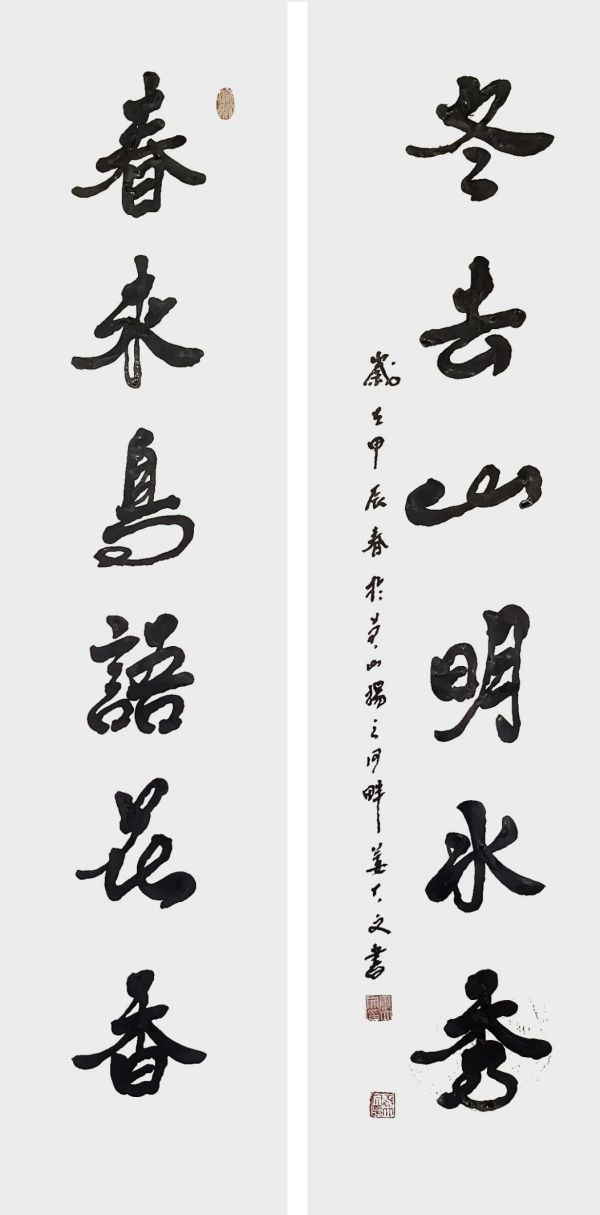 冬去山明水秀
歲在甲辰春於黄山揚之河畔姜大文書
春来鳥語花香